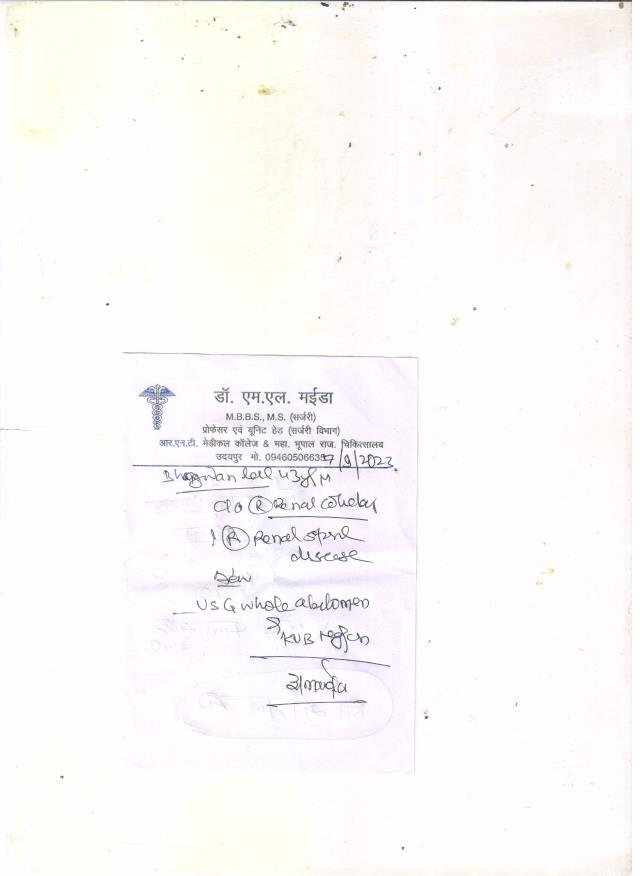 डॉ. एम.एल. मईडा
M.B.B.S., M.S. (सर्जरी)
प्रोफेसर एवं यूनिट हेड (सर्जरी विभाग)
आर.एन.टी. मेडीकल कॉलेज & महा. भूपाल राज. चिकित्सालय
उदयपुर मो. 094605066 7/9/2023
Bhagwan lal 43y/M
C/o (R) Renal
? (R) Renal
disease
Adv
USG whole abdomen
KUB region